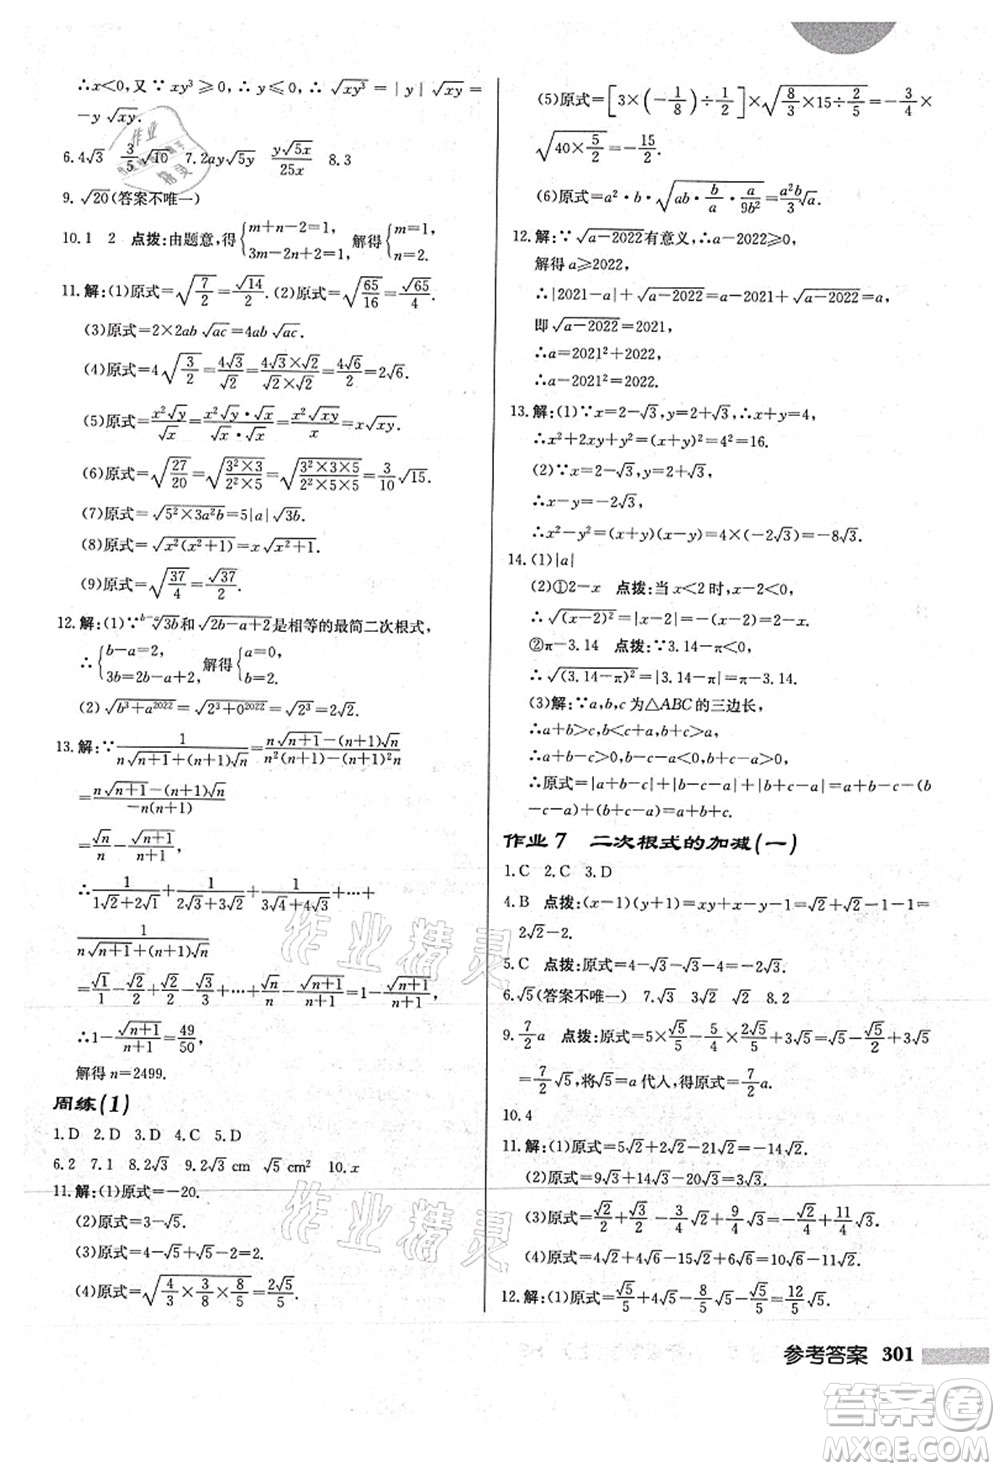 ∴x<0,又∵xy³≥0,∴y≤0,∴√(xy³)=|y|√(xy)=
-y√(xy).
6.4√3 3/5√10 7.2ay√(5y) y√(5x)/(25x) 8.3
9.√20(答案不唯一)
10.1 2 点拨:由题意,得{m+n-2=1, 3m-2n+2=1, 解得{m=1, n=2.
11.解:(1)原式=√(7/2)=√14/2.(2)原式=√(65/16)=√65/4.
(3)原式=2×2ab√(ac)=4ab√(ac).
(4)原式=4√(3/2)=4√3/√2=(4√3×√2)/(√2×√2)=2√6.
(5)原式=x²√y/√x=(x²√y·√x)/(√x·√x)=x√(xy).
(6)原式=√(27/20)=√((3²×3)/(2²×5))=√((3²×3×5)/(2²×5×5))=3/10√15.
(7)原式=√(5²×3a²b)=5|a|√(3b).
(8)原式=√(x²(x²+1))=x√(x²+1).
(9)原式=√(37/4)=√37/2.
12.解:(1)∵ᵇ⁻ᵃ√(3b)和√(2b-a+2)是相等的最简二次根式,
∴{b-a=2, 3b=2b-a+2, 解得{a=0, b=2.
(2)√(b³+a²⁰²²)=√(2³+0²⁰²²)=√(2³)=2√2.
13.解:∵1/(n√(n+1)+(n+1)√n)=(n√(n+1)-(n+1)√n)/(n²(n+1)-(n+1)²n)
=(n√(n+1)-(n+1)√n)/(-n(n+1))
=√n/n-√(n+1)/(n+1),
∴1/(1√2+2√1)+1/(2√3+3√2)+1/(3√4+4√3)+…+
1/(n√(n+1)+(n+1)√n)
=√1/1-√2/2+√2/2-√3/3+…+√n/n-√(n+1)/(n+1)=1-√(n+1)/(n+1),
∴1-√(n+1)/(n+1)=49/50,
解得n=2499.
周练(1)
1.D 2.D 3.D 4.C 5.D
6.2 7.1 8.2√3 cm √5 cm² 10.x
11.解:(1)原式=-20.
(2)原式=3-√5.
(3)原式=4-√5+√5-2=2.
(4)原式=√(4/3×3/8×8/5)=2√5/5.
(5)原式=[3×(-1/8)÷1/2]×√(8/3×15÷2/5)=-3/4×
√(40×5/2)=-15/2.
(6)原式=a²·b·√(ab·b/a·a/(9b²))=a²b/3√a.
12.解:∵√(a-2022)有意义,∴a-2022≥0,
解得a≥2022,
∴|2021-a|+√(a-2022)=a-2021+√(a-2022)=a,
即√(a-2022)=2021,
∴a=2021²+2022,
∴a-2021²=2022.
13.解:(1)∵x=2-√3,y=2+√3,∴x+y=4,
∴x²+2xy+y²=(x+y)²=4²=16.
(2)∵x=2-√3,y=2+√3,
∴x-y=-2√3,
∴x²-y²=(x+y)(x-y)=4×(-2√3)=-8√3.
14.(1)|a|
(2)①2-x 点拨:当x<2时,x-2<0,
∴√((x-2)²)=|x-2|=-(x-2)=2-x.
②π-3.14 点拨:∵3.14-π<0,
∴√((3.14-π)²)=|3.14-π|=π-3.14.
(3)解:∵a,b,c为△ABC的三边长,
∴a+b>c,b<c+a,b+c>a,
∴a+b-c>0,b-c-a<0,b+c-a>0,
∴原式=|a+b-c|+|b-c-a|+|b+c-a|=a+b-c-(b
-c-a)+(b+c-a)=a+b+c.
作业7 二次根式的加减(一)
1.C 2.C 3.D
4.B 点拨:(x-1)(y+1)=xy+x-y-1=√2+√2-1-1=
2√2-2.
5.C 点拨:原式=4-√3-√3=4-2√3.
6.√5(答案不唯一) 7.√3 3√2 √2 8.2
9.7/2a 点拨:原式=5×√5/5-5/4×2√5/5+3√5=√5-√5/2+3√5
=7/2√5,将√5=a代人,原式=7/2√5=7/2a.
10.4
11.解:(1)原式=5√2+2√2-21√2=-14√2.
(2)原式=4√3-√3+3√3=6√3.
(3)原式=√2/2+√3/2-3/4√2+9/4√3=-√2/4+11/4√3.
(4)原式=4√2+6√2-15√2+15√2=10√2.
12.解:(1)原式=√5/5+4√5-√5+4√5/5=4√5.
参考答案 301
作业精灵
作业精灵
答案卷
MXQE.COM